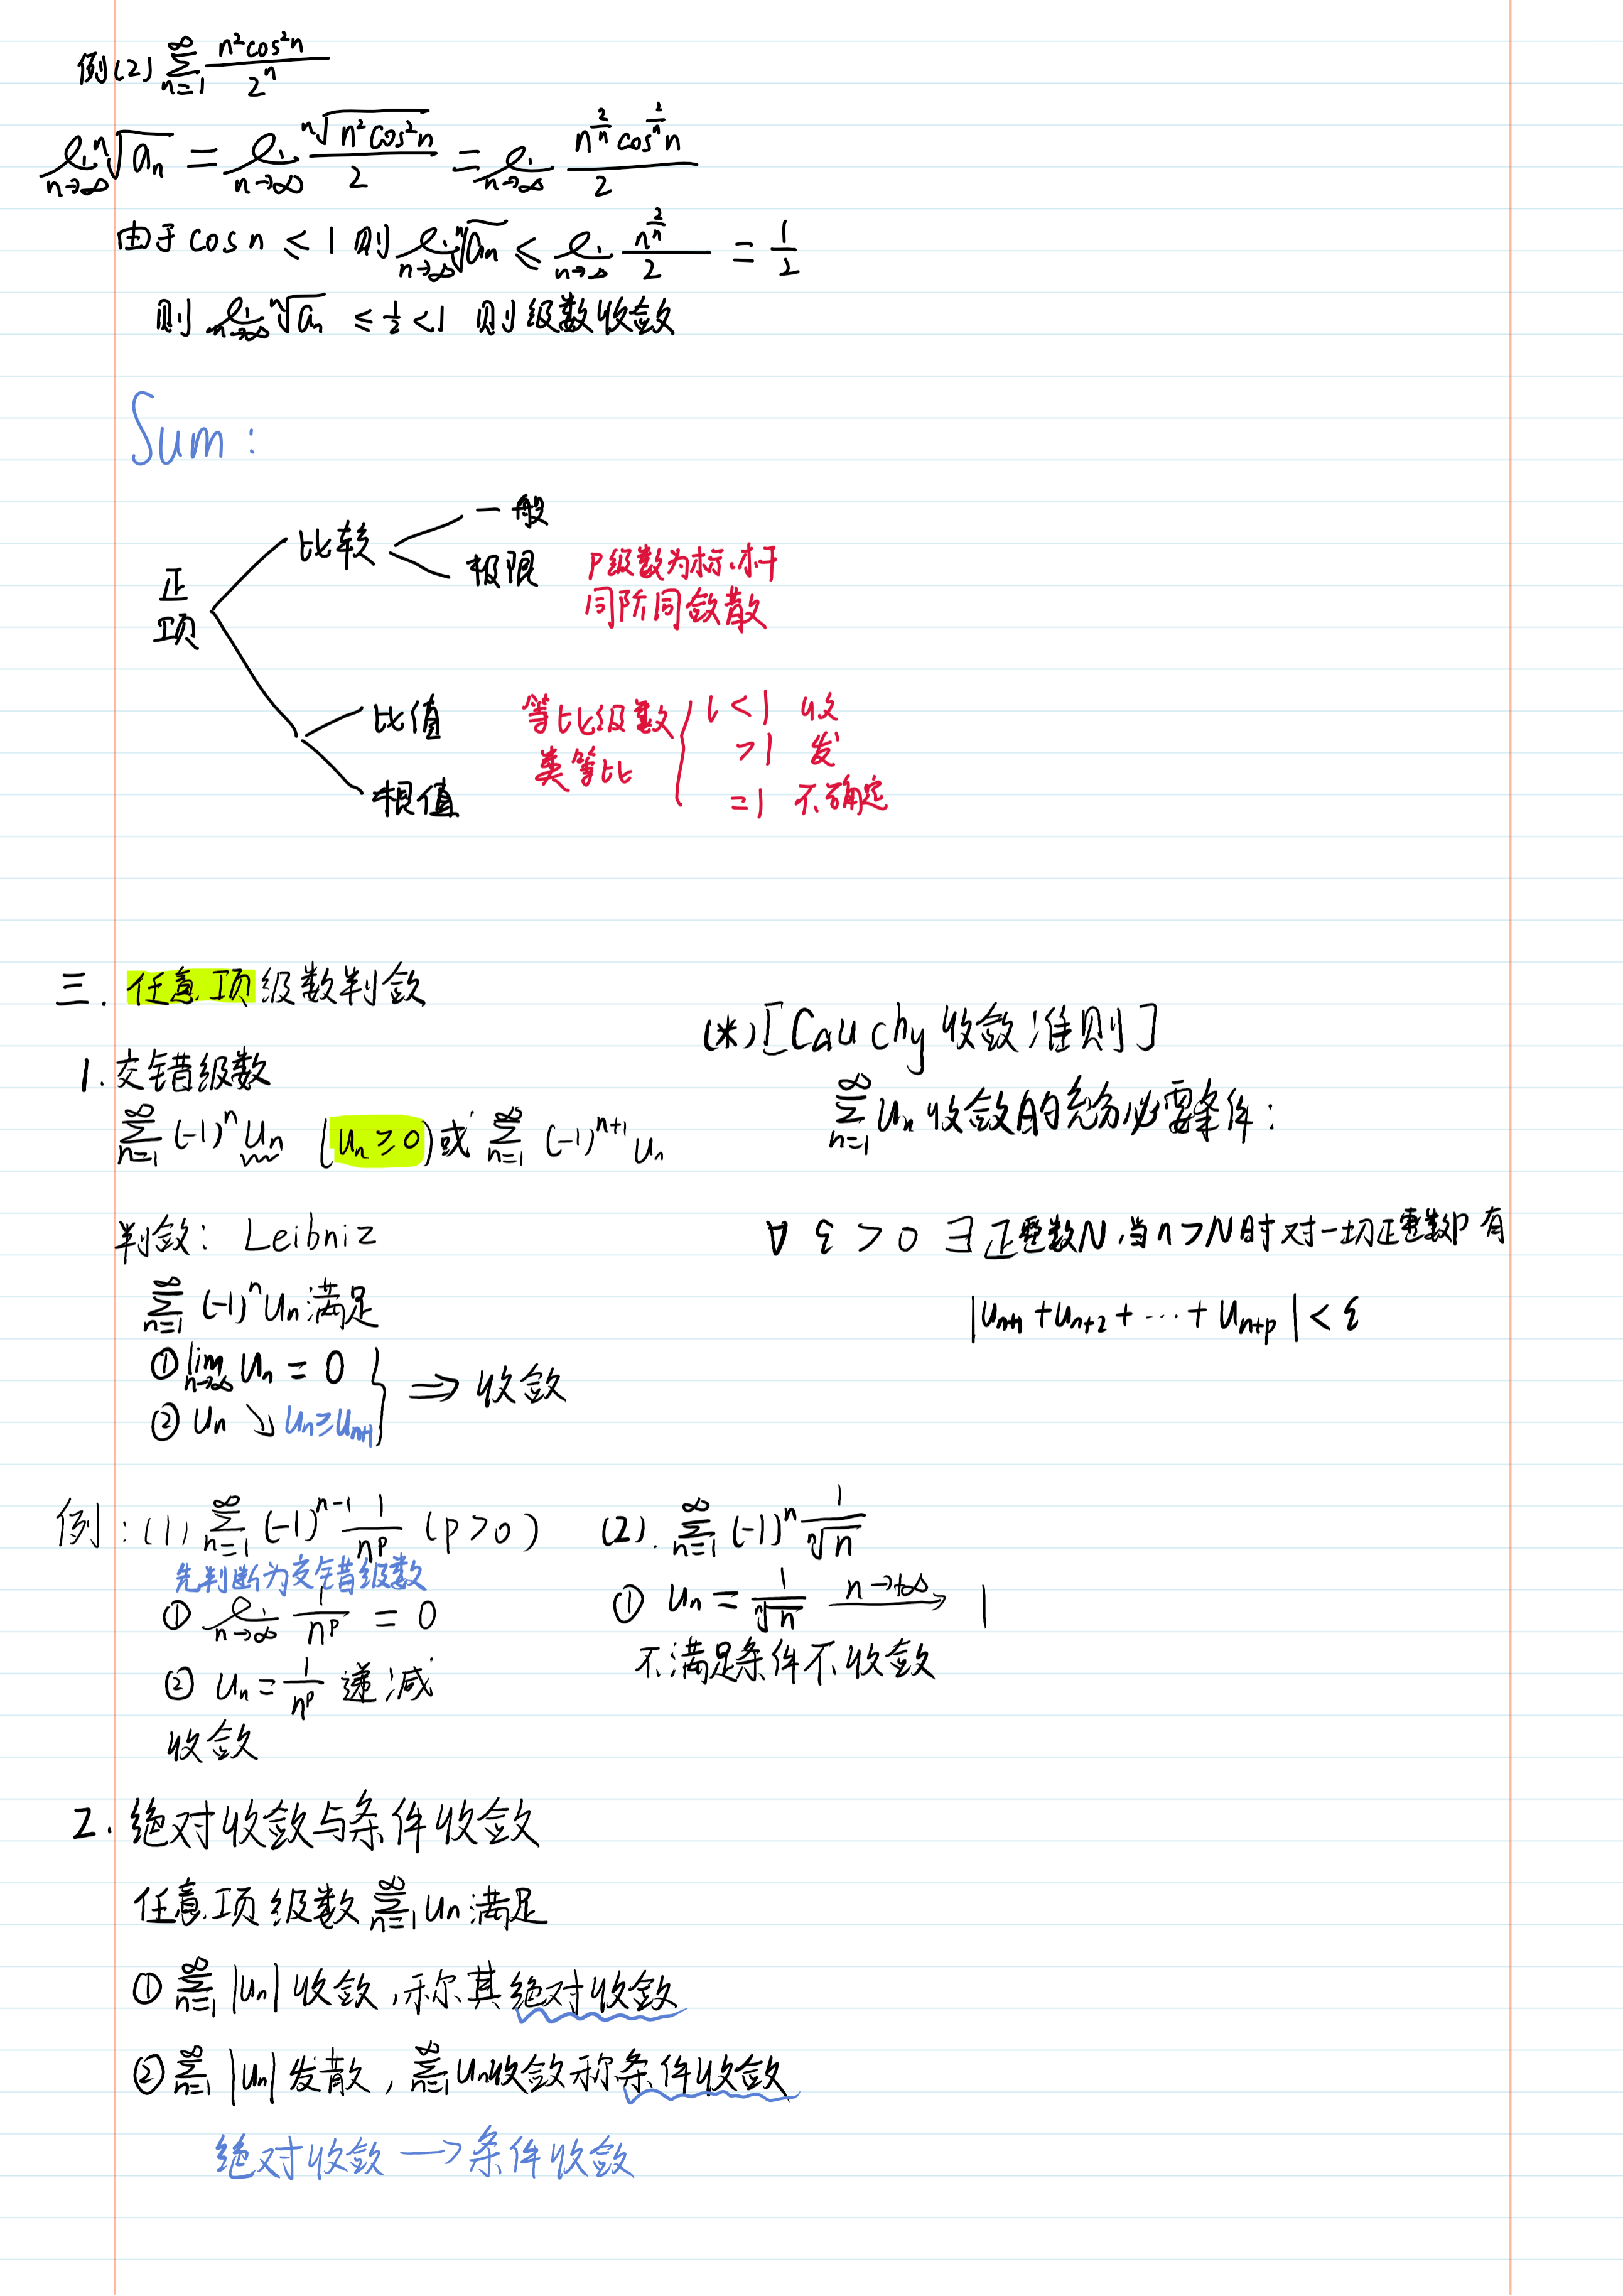 例(2) ∑_{n=1}^{∞} n²cos²n / 2ⁿ
lim_{n→∞} ⁿ√aₙ = lim_{n→∞} ⁿ√(n²cos²n) / 2 = lim_{n→∞} n^{2/n} cos^{2/n} n / 2
由于 cos n ≤ 1 则 lim_{n→∞} ⁿ√aₙ ≤ lim_{n→∞} n^{2/n} / 2 = 1/2
则 lim_{n→∞} ⁿ√aₙ ≤ 1/2 < 1 则级数收敛
Sum:
正项
比较
一般
极限
P级数为标杆
同阶同敛散
比值
根值
等比级数
类等比
l < 1 收
> 1 发
= 1 不确定
三. 任意项级数判敛
1. 交错级数
∑_{n=1}^{∞} (-1)ⁿ uₙ (uₙ ≥ 0) 或 ∑_{n=1}^{∞} (-1)^{n+1} uₙ
判敛: Leibniz
∑_{n=1}^{∞} (-1)ⁿ uₙ 满足
① lim_{n→∞} uₙ = 0
② uₙ ↘ uₙ ≥ uₙ₊₁
⇒ 收敛
(*) [Cauchy 收敛准则]
∑_{n=1}^{∞} uₙ 收敛的充分必要条件:
∀ ε > 0 ∃ 正整数N, 当 n > N 时 对一切正整数P 有
|uₙ₊₁ + uₙ₊₂ + ⋯ + uₙ₊ₚ| < ε
例: (1) ∑_{n=1}^{∞} (-1)^{n-1} 1/nᵖ (p > 0)
先判断为交错级数
① lim_{n→∞} 1/nᵖ = 0
② uₙ = 1/nᵖ 递减
收敛
(2). ∑_{n=1}^{∞} (-1)ⁿ 1/ⁿ√n
① uₙ = 1/ⁿ√n —n→+∞→ 1
不满足条件不收敛
2. 绝对收敛与条件收敛
任意项级数 ∑_{n=1}^{∞} uₙ 满足
① ∑_{n=1}^{∞} |uₙ| 收敛, 称其绝对收敛
② ∑_{n=1}^{∞} |uₙ| 发散, ∑_{n=1}^{∞} uₙ 收敛称条件收敛
绝对收敛 → 条件收敛